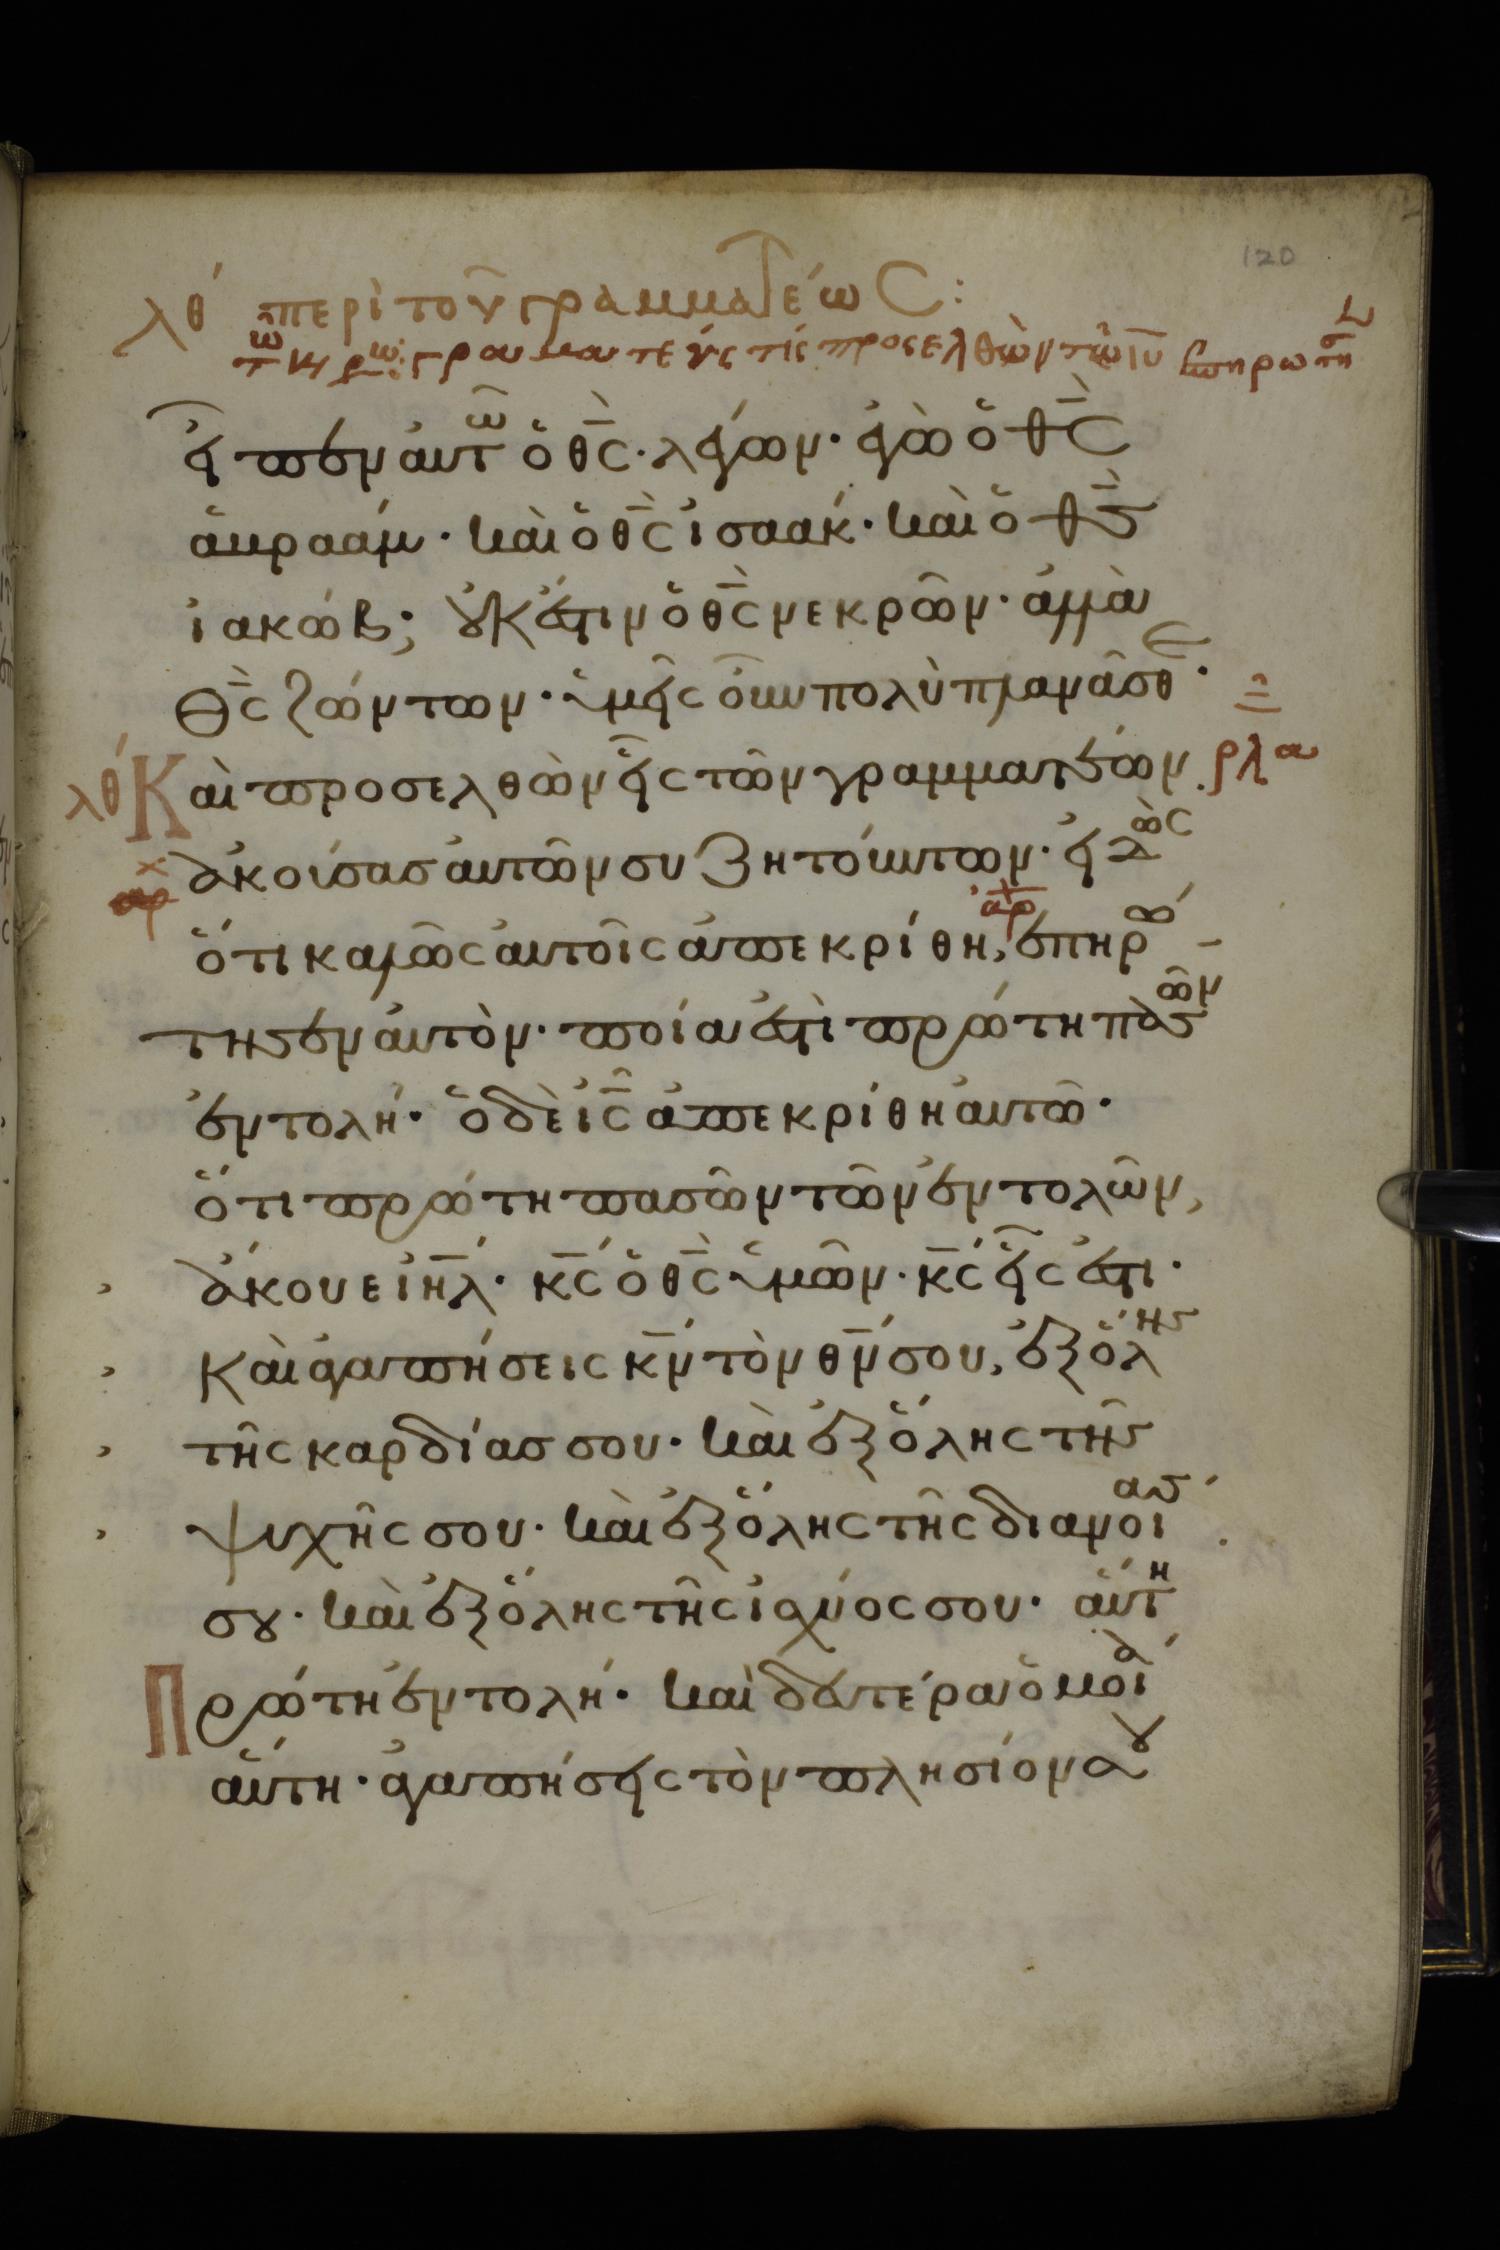 120
λθ΄ περὶ τοῦ γραμματέως:
τῶ κ̅ρ̅ῶ: γραμματεύς τίς προσελθὼν τῶ ι̅υ̅ ἐπηρώτη
εἶπεν αὐτῶ ὁ θ̅ς̅· λέγων· ἐγὼ ὁ θ̅ς̅
ἁβραάμ· καὶ ὁ θ̅ς̅ ἰσαάκ· καὶ ὁ θ̅ς̅
ἰακώβ; οὐκ ἔστιν ὁ θ̅ς̅ νεκρῶν· ἀλλὰ
θ̅ς̅ ζώντων· ὑμεῖς οὖν πολὺ πλανᾶσθε·
λθ΄ Καὶ προσελθὼν εἷς τῶν γραμματέων ρλα
ἀρχ ἀκούσας αὐτῶν συζητούντων· εἰδὼς
ὅτι καλῶς αὐτοῖς ἀπεκρίθη, ἀρχ ἐπηρώ-
τησεν αὐτὸν· ποία ἐστὶ πρώτη πασῶν
ἐντολή· ὁ δὲ ι̅ς̅ ἀπεκρίθη αὐτῶ·
ὅτι πρώτη πασῶν τῶν ἐντολῶν,
ἄκουε ι̅η̅λ̅· κ̅ς̅ ὁ θ̅ς̅ ὑμῶν· κ̅ς̅ εἷς ἐστι·
καὶ ἀγαπήσεις κ̅ν̅ τὸν θ̅ν̅ σου, ἐξ ὅλης
τῆς καρδίας σου· καὶ ἐξ ὅλης τῆς
ψυχῆς σου· καὶ ἐξ ὅλης τῆς διανοίας
σου· καὶ ἐξ ὅλης τῆς ἰσχύος σου· αὕτη
Πρώτη ἐντολή· καὶ δευτέρα ὁμοία
αὕτη· ἀγαπήσεις τὸν πλησίον σου